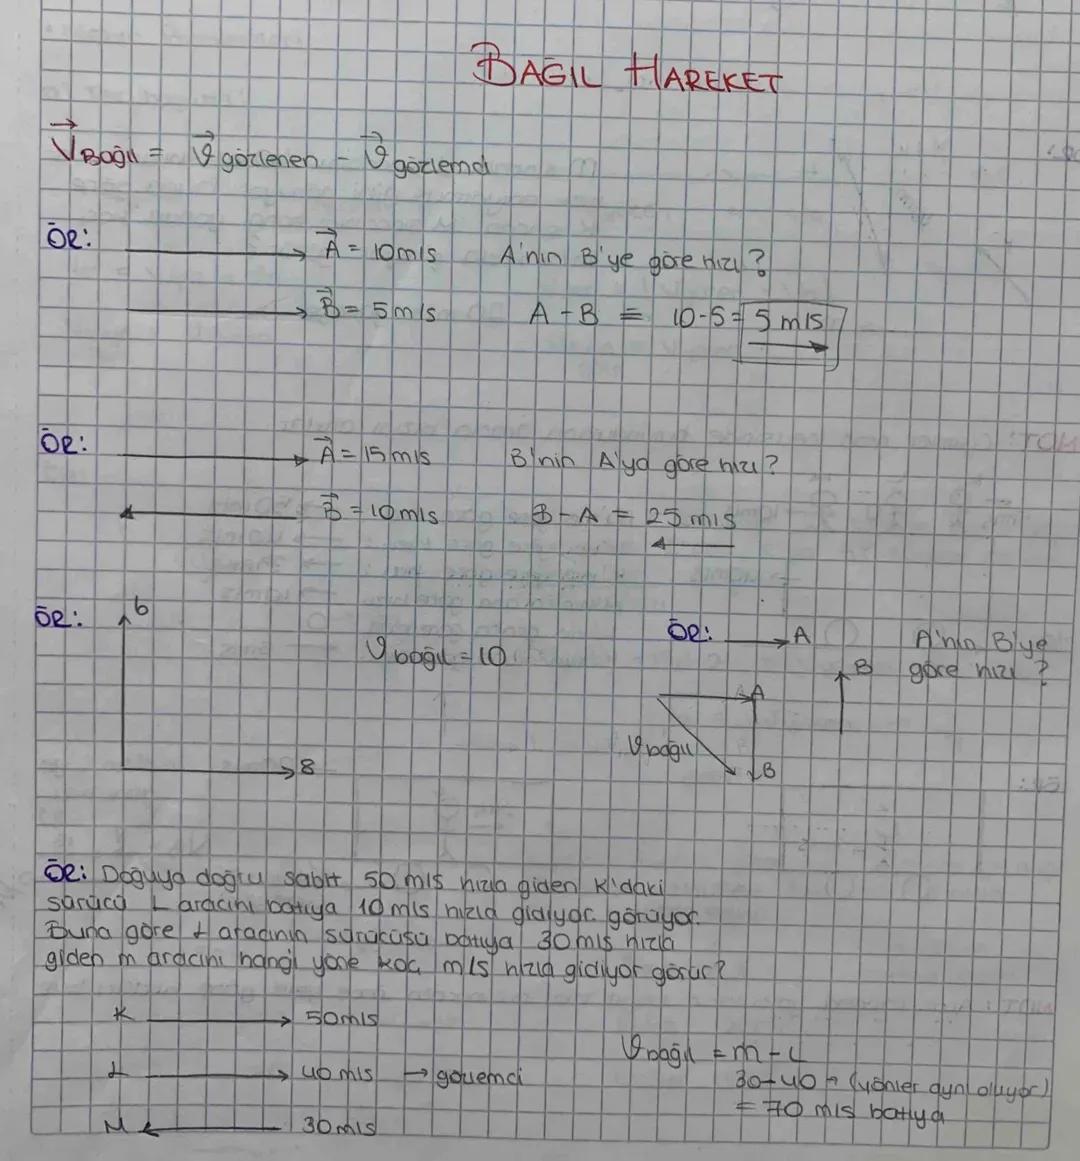 BAĞIL HAREKET
V Bağıl = ϑ gözlenen - ϑ gözlemci
ÖR:
A = 10m/s A'nın B'ye göre hızı?
B = 5m/s A-B = 10-5= 5 m/s
ÖR:
A = 15m/s B'nin A'ya göre hızı?
B = 10m/s B-A = 25 m/s
ÖR: 6
ϑ bağıl = 10
8
ÖR: A A'nın B'ye
B göre hızı?
A
ϑ bağıl
B
ÖR: Doğuya doğru sabit 50 m/s hızla giden K'daki
sürücü L aracını batıya 10 m/s hızla gidiyor görüyor.
Buna göre L aracının sürücüsü batıya 30 m/s hızla
giden m aracını hangi yöne kaç m/s hızla gidiyor görür?
K 50m/s
L 40m/s → gözlemci
M 30m/s
ϑ bağıl = m - L
30+40 → (yönler aynı oluyor)
= 70 m/s batıya